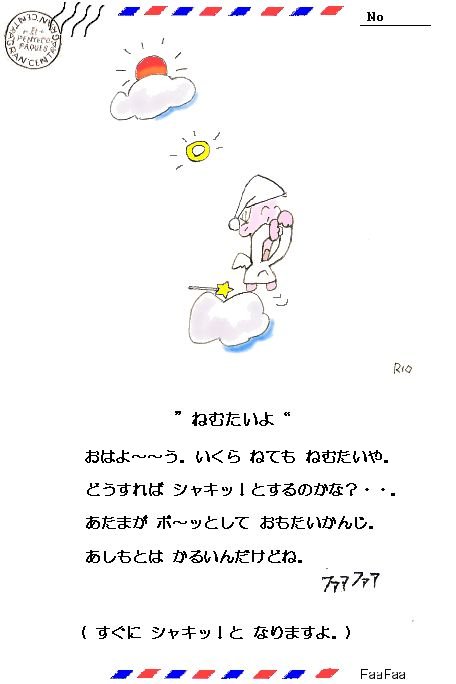 No
RIO
” ねむたいよ “
おはよ～～う。いくら ねても ねむたいや。
どうすれば シャキッ！とするのかな？・・。
あたまが ボ～ッとして おもたいかんじ。
あしもとは かるいんだけどね。
ファァファァ
( すぐに シャキッ！と なりますよ。)
FaaFaa